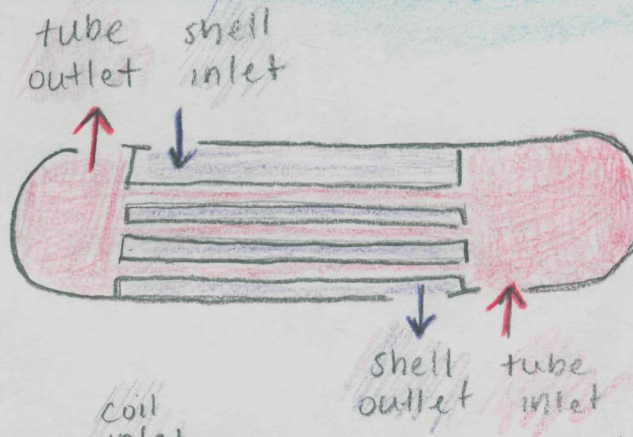 tube
outlet
shell
inlet
shell
outlet
tube
inlet
coil
inlet